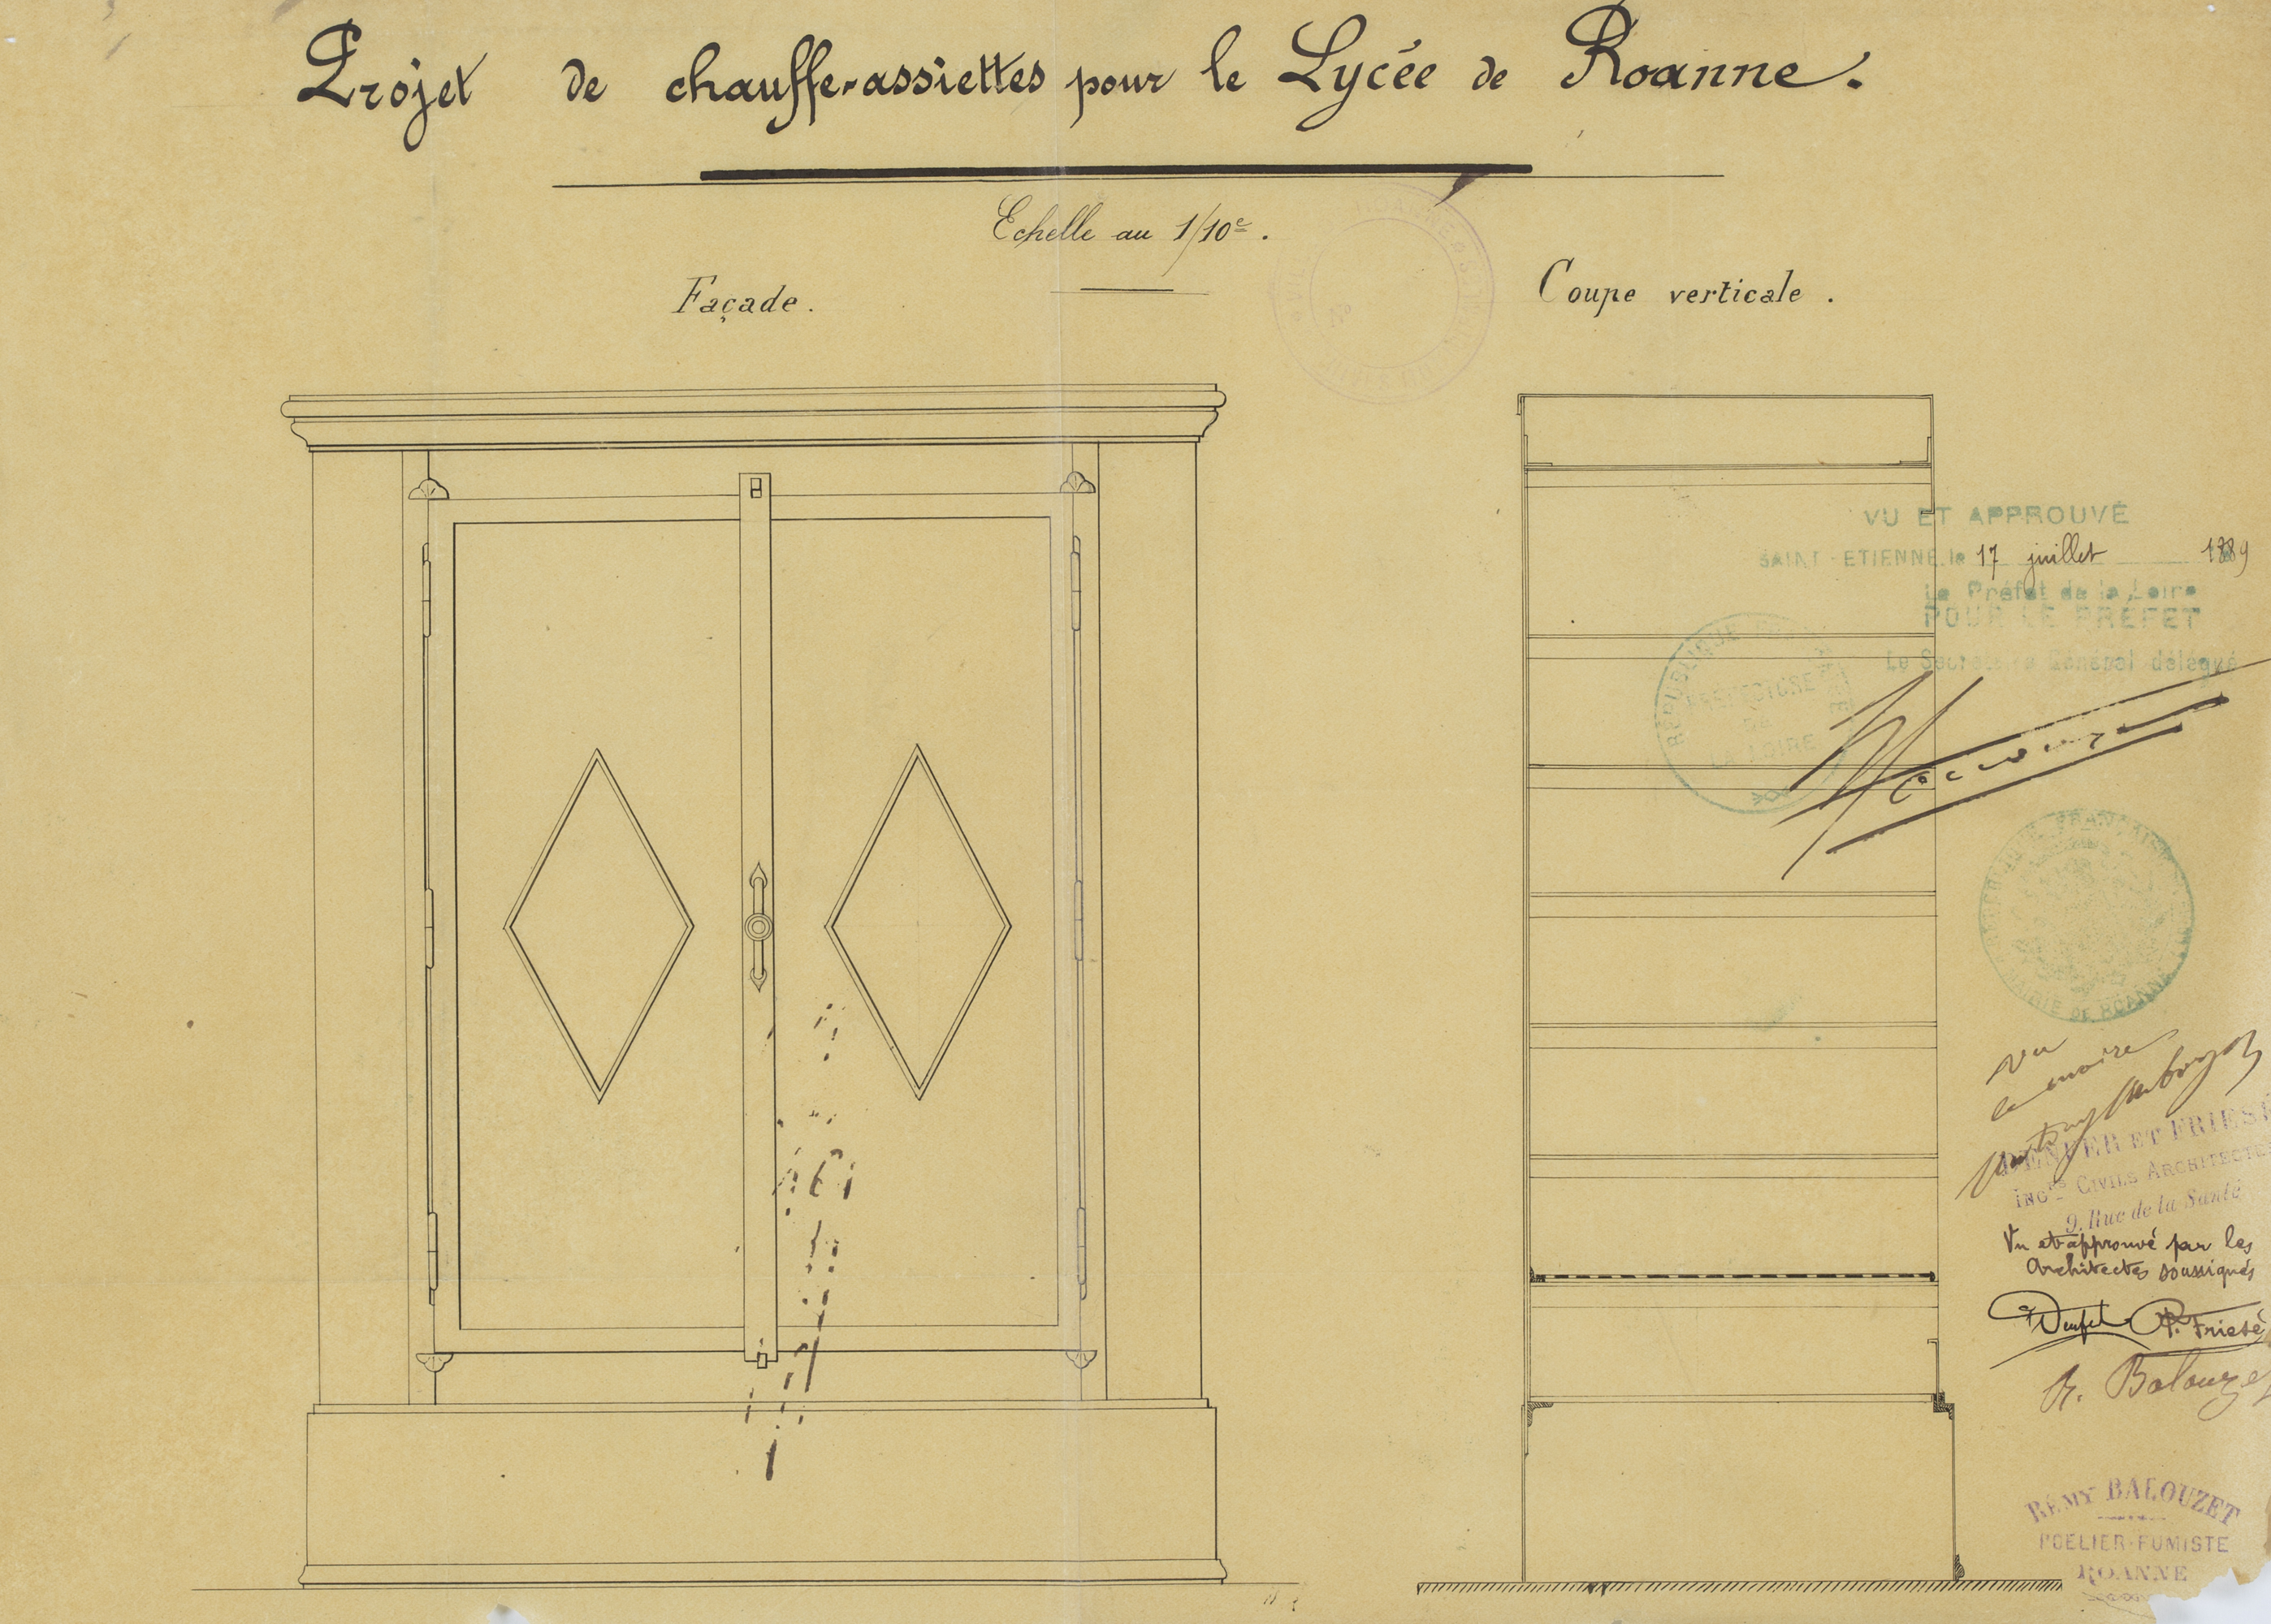 Projet de chauffe-assiettes pour le Lycée de Roanne.
Echelle au 1/10e.
Façade.
Coupe verticale.
VU ET APPROUVÉ
SAINT-ETIENNE, le 17 juillet 1889
Le Préfet de la Loire
POUR LE PRÉFET
Le Secrétaire Général délégué
RÉPUBLIQUE FRANÇAISE
PRÉFECTURE
DE
LA LOIRE
RÉPUBLIQUE FRANÇAISE
MAIRIE DE ROANNE
Vu
le maire
ET FRIESÉ
INGrs CIVILS ARCHITECTES
9, Rue de la Santé
Vu et approuvé par les
Architectes soussignés
P. Friesé
R. Balouzet
RÉMY BALOUZET
POELIER-FUMISTE
ROANNE